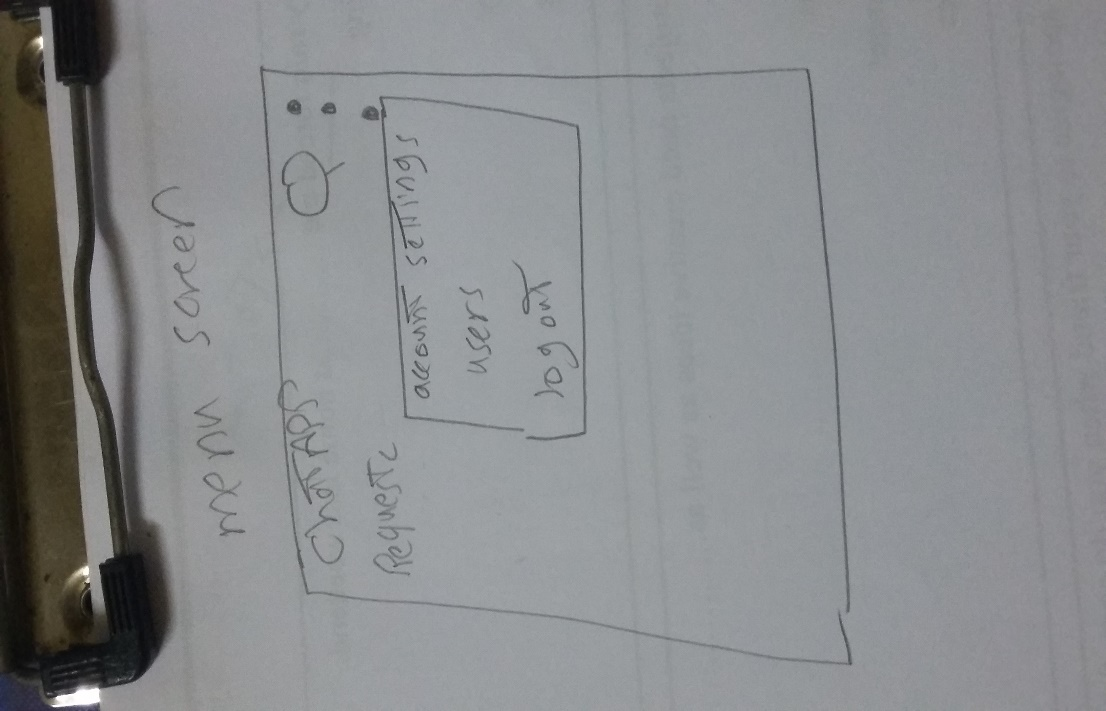 menu screen
ChatApp
Requests
account settings
users
log out